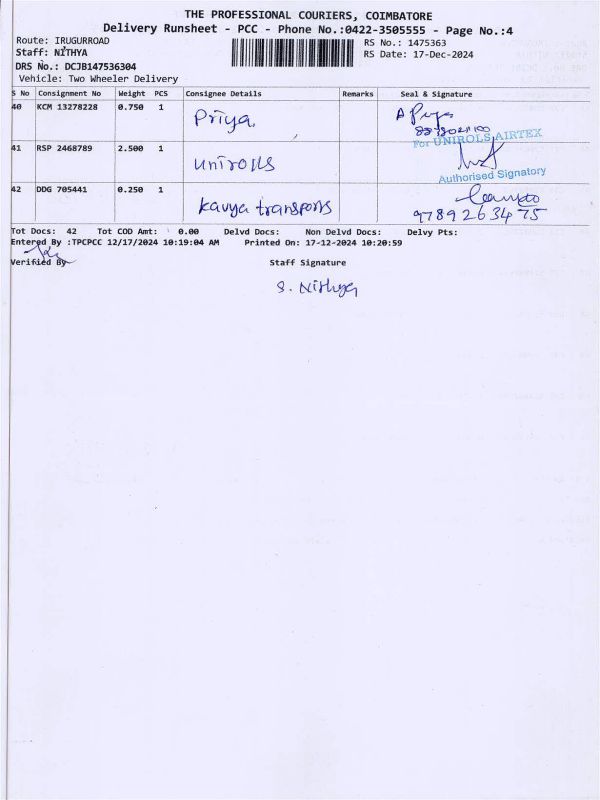 THE PROFESSIONAL COURIERS, COIMBATORE
Delivery Runsheet - PCC - Phone No.:0422-3505555 - Page No.:4
Route: IRUGURROAD
RS No.: 1475363
Staff: NITHYA
RS Date: 17-Dec-2024
DRS No.: DCJB147536304
Vehicle: Two Wheeler Delivery
S No Consignment No Weight PCS Consignee Details Remarks Seal & Signature
40 KCM 13278228 0.750 1 Priya
For UNIROLS AIRTEX
41 RSP 2468789 2.500 1 unirolls
Authorised Signatory
42 DDG 705441 0.250 1 kavya transports
9789263475
Tot Docs: 42 Tot COD Amt: 0.00 Delvd Docs: Non Delvd Docs: Delvy Pts:
Entered By :TPCPCC 12/17/2024 10:19:04 AM Printed On: 17-12-2024 10:20:59
Verified By Staff Signature
S. Nithya